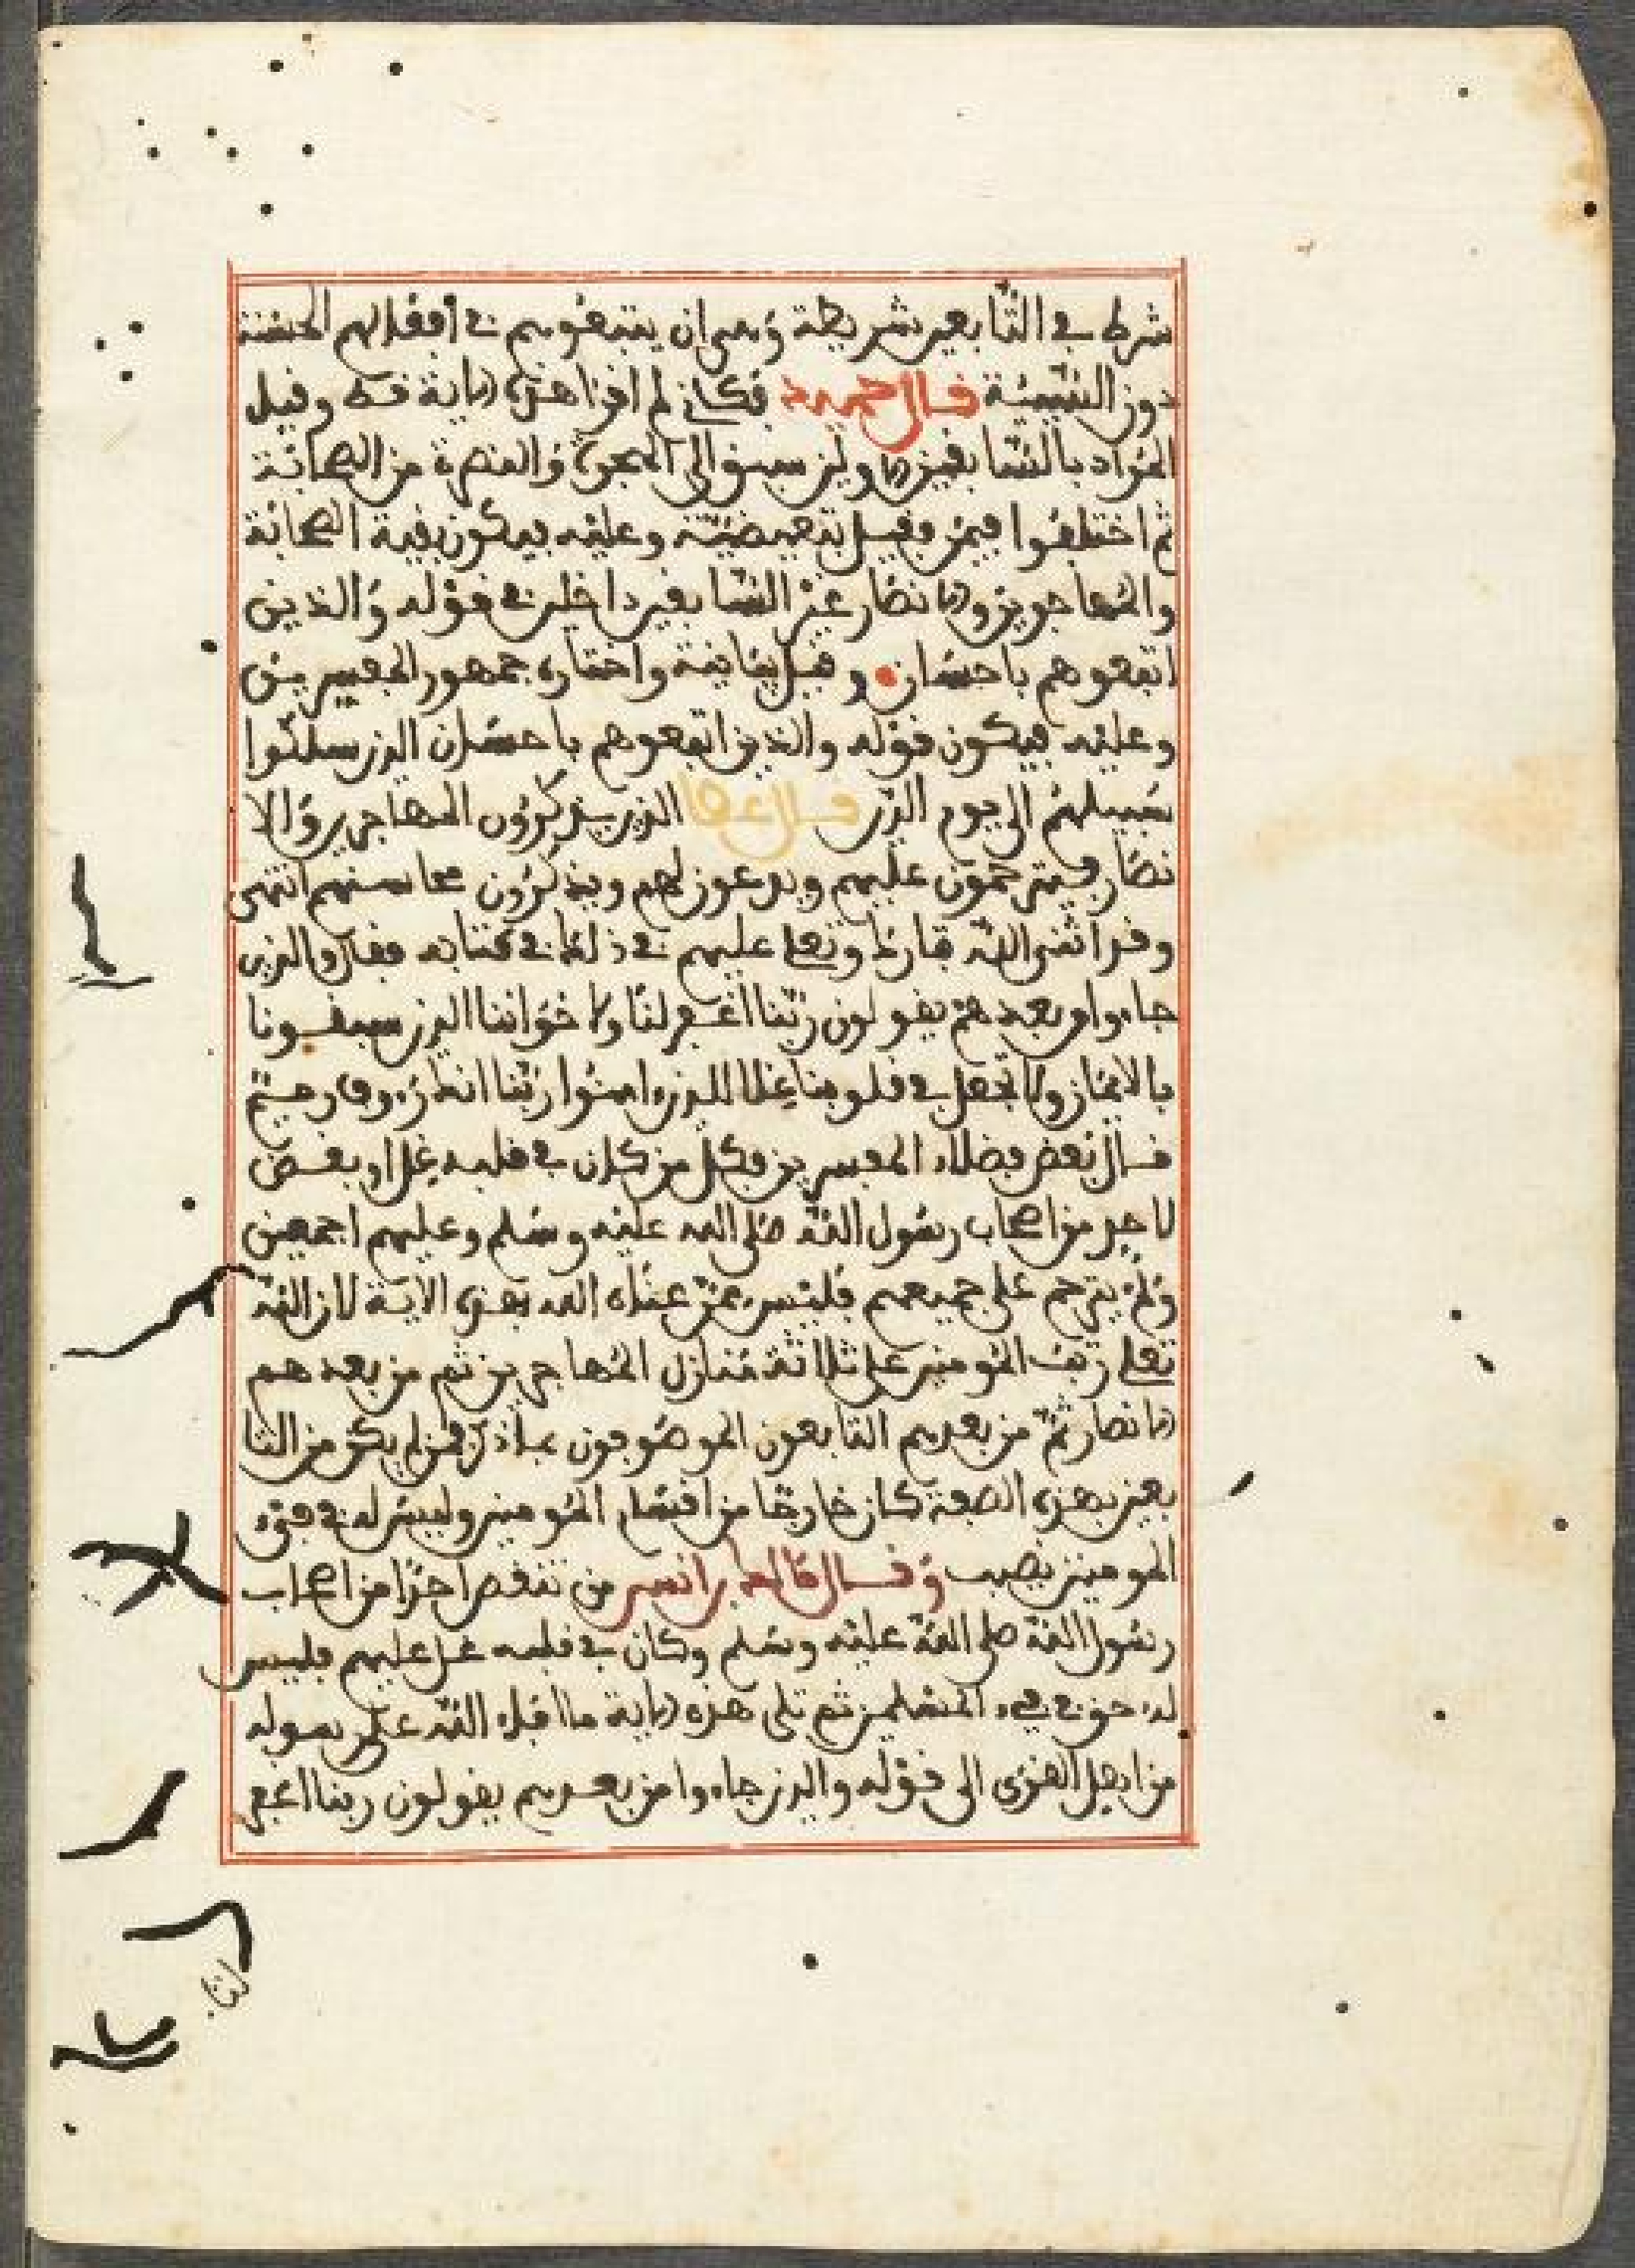 شرط في التابعين شريطة وهي ان يتبعوهم في افعالهم الحسنة
دون السيئة قال حميد فكاني لم اقرا هذه الاية قط وقيل
المراد بالسابقين الاولين من سبق الى الهجرة والنصرة من الصحابة
ثم اختلفوا فيمن وقيل تبعيضية وعليه فيكون بقية الصحابة
والمهاجرين والانصار غير السابقين داخلين في قوله والذين
اتبعوهم باحسان وقيل بيانية واختاره جمهور المفسرين
وعليه فيكون قوله والذين اتبعوهم باحسان الذين سلكوا
سبيلهم الى يوم الدين قال عطا الذين يذكرون المهاجرين والا
نصار فيترحمون عليهم ويدعون لهم ويذكرون محاسنهم انتهى
وقد اثنى الله تبارك وتعلى عليهم في ذلك في كتابه فقال والذين
جاءوا من بعدهم يقولون ربنا اغفر لنا ولاخواننا الذين سبقونا
بالايمان ولا تجعل في قلوبنا غلا للذين ءامنوا ربنا انك رءوف رحيم
قال بعض فضلاء المفسرين فكل من كان في قلبه غل او بغض
لاحد من اصحاب رسول الله صلى الله عليه وسلم وعليهم اجمعين
ولم يترحم على جميعهم فليس ممن عناه الله بهذه الاية لان الله
تعلى رتب المومنين على ثلاثة منازل المهاجرين ثم من بعدهم
الانصار ثم من بعدهم التابعون الموصوفون بما ذكر فمن لم يكن من التا
بعين بهذه الصفة كان خارجا من اقسام المومنين وليس له في
المومنين نصيب وقال مالك بن انس من تنقص احدا من اصحاب
رسول الله صلى الله عليه وسلم وكان في قلبه غل عليهم فليس
له حق في فيء المسلمين ثم تلى هذه الاية ما افاء الله على رسوله
من اهل القرى الى قوله والذين جاءوا من بعدهم يقولون ربنا اغفر